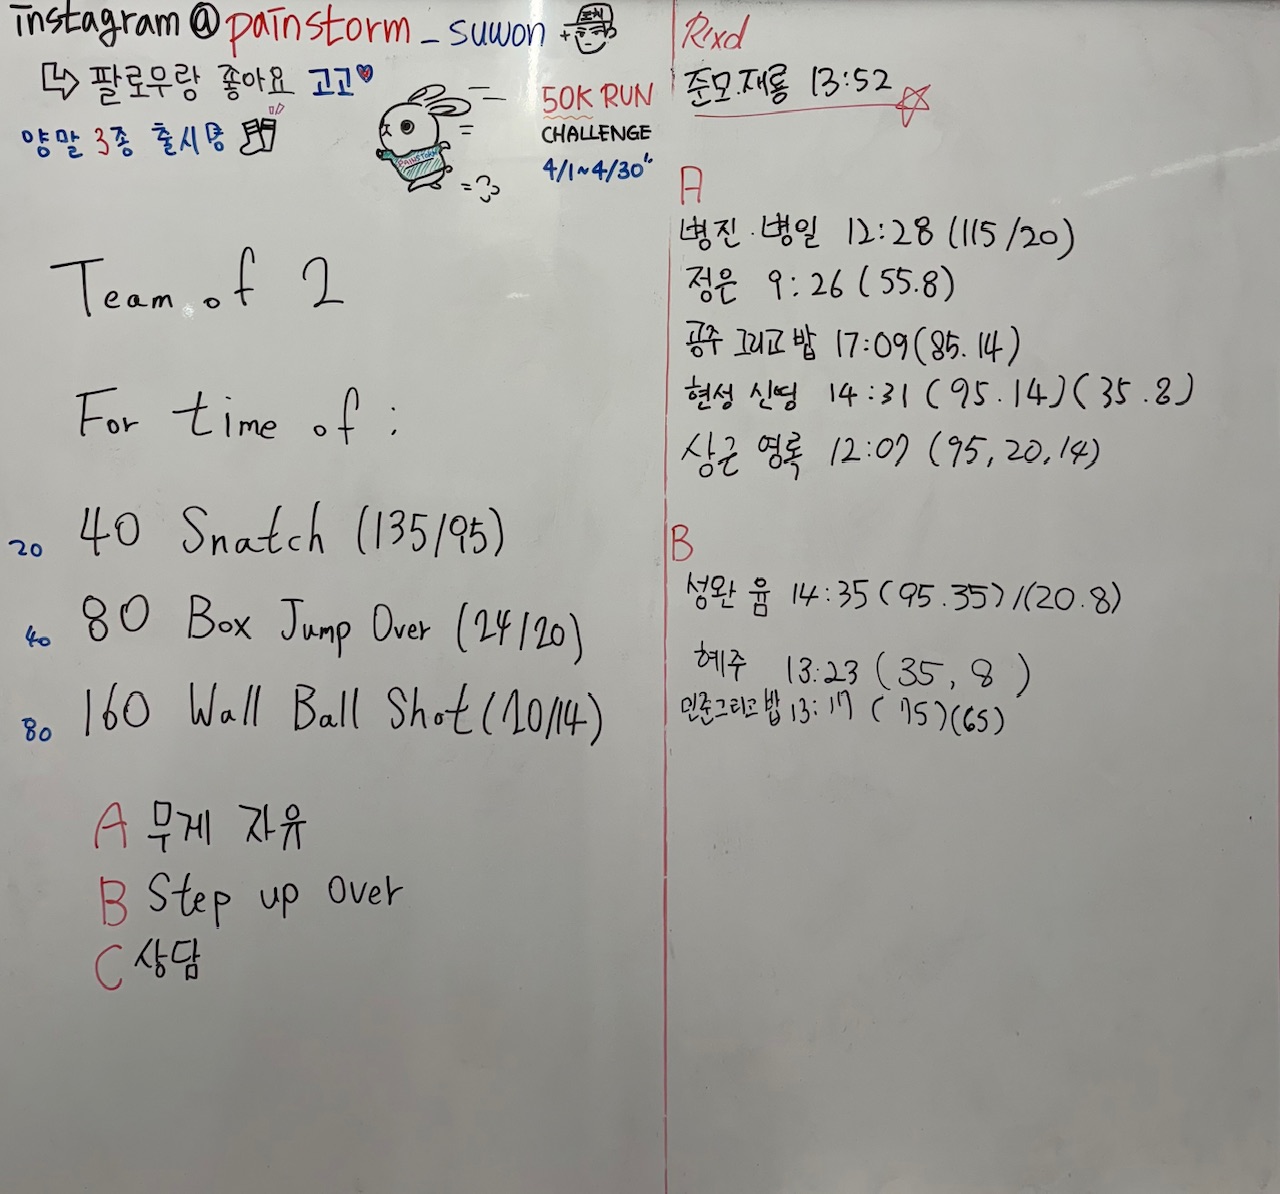 instagram@painstorm_suwon
팔로우랑 좋아요 고고
양말 3종 출시중
PAINSTORM
50K RUN
CHALLENGE
4/1~4/30"
Team of 2
For time of :
20 40 Snatch (135/95)
40 80 Box Jump Over (24/20)
80 160 Wall Ball Shot (20/14)
A 무게 자유
B Step up over
C 상담
Rxd
준모.재룡 13:52
A
병진.병일 12:28 (115/20)
정은 9:26 (55.8)
공주 그리고 밥 17:09 (85.14)
현성 신띵 14:31 (95.14)(35.8)
상근 영록 12:07 (95,20,14)
B
성완 윰 14:35 (95.35)/(20.8)
혜주 13:23 (35, 8)
민준그리고밥 13:17 (75)(65)